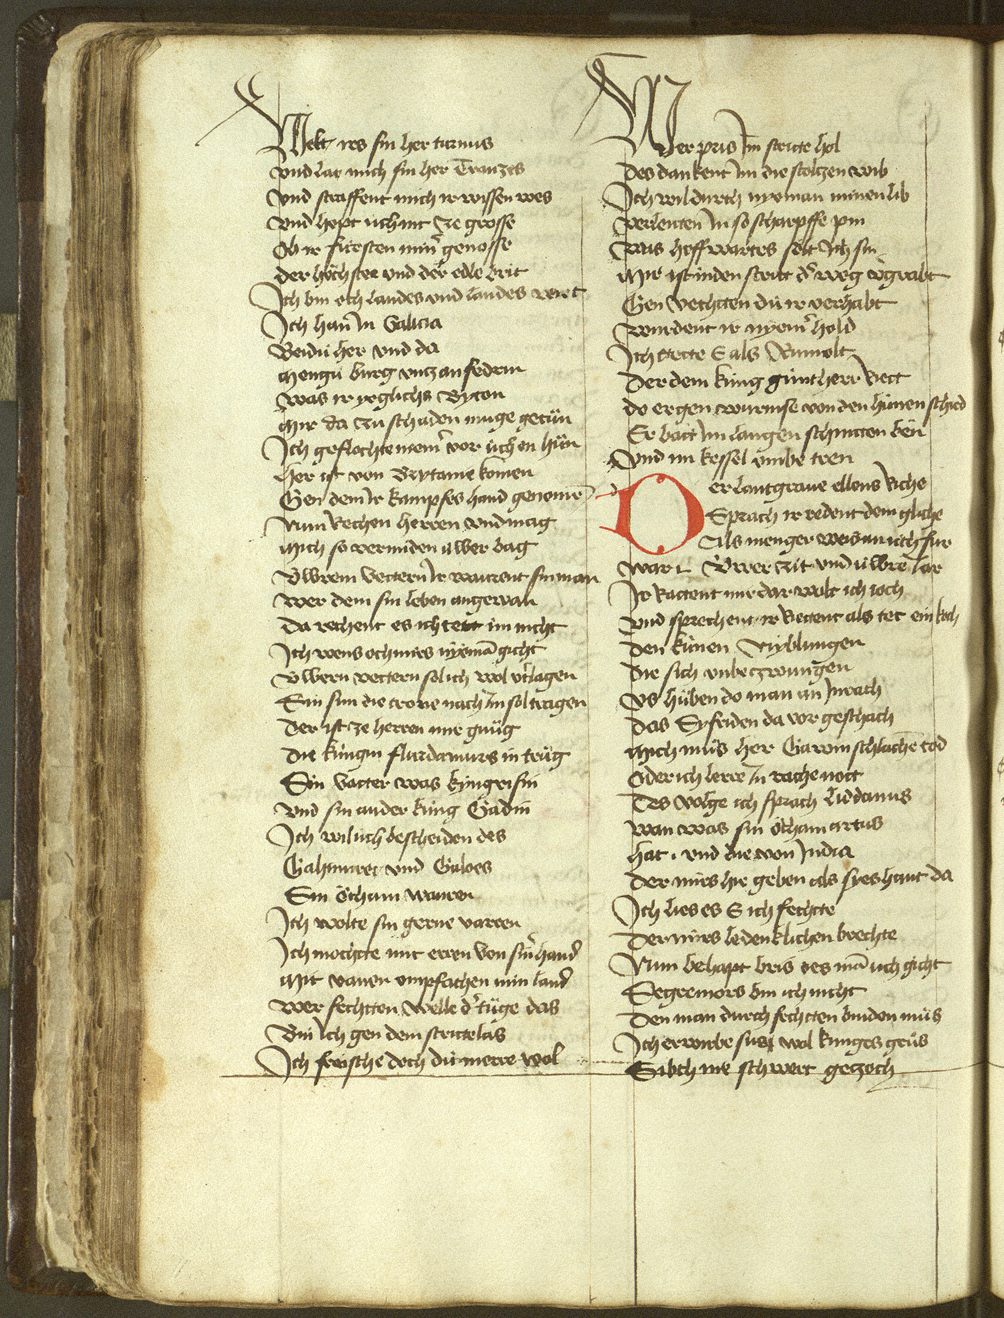 Welt irs sin her turnus
vnd lat mich sin her Tranzes
Vnd straffent mich ir wissen wes
Vnd hept uch nit ze grosse
Ob ir fürsten min genosse
der höchste und der edle brit
Ich bin och landes vnd landes wirt
Ich han in Galicia
Beidu her vnd da
mengu burg vntz an fedrin
Was ir yeglichs Byton
mir da zu schaden muge getün
Ich geflochte niemer vor uch en hün
her ist von Brytanie komen
Gen dem ir kampfes hand genomē
Nun Rechen herren vnd mag
Mich so vermiden uwer bag
Vwrem vettern ir warent sin man
Wer dem sin leben angewan
Da rechent es ich tett im nicht
Ich wens och mirs nyemā gicht
Vwern vettern sol ich wol v̓clagen
Sin sun die crone nach im sol tragen
Der ist ze herren mir gnüg
Die kungin flurdamurs in trüg
Sin vatter was kyngrisin
vnd sin ander kung Gadin
Ich wil uch bescheiden des
Gahmuret vnd Galoes
Sin öcham waren
Ich wolte sin gerne varren
Ich mochtte mit eren von sin̓ hand
Mit vanen empfachen min land
Wer fechtten welle d̓ tüge das
Bin ich gen dem stritte las
Ich freische doch du merre wol
Wer pris im stritte hol
Des dankent im die stoltzen wib
Ich wil durch nyeman minen lib
Verleiten in so scharpffe pin
Was hoffwartes solt ich sin
Mir ist in den stritt d̓ weg v̓grabt
Gen vechtten du ir verhabt
Wurdent ir nyem̓ hold
Ich tette E als Rumolt
Der dem kung gunther Riet
do er gen wurmse von den hünen schied
Er batt im langen schnitten beÿ
Vnd im kessel vmbe tren
Der lantgraue ellens Riche
Sprach ir redent dem gliche
Als menger weis an uch fur
war i vwer zit vnd uwre iar
Ir Rattent mir dar wolt ich ioch
vnd sprechent ir Rettent als tet ein koch
den künen Nyblungen
Die sich vnbezwungen
vs hüben do man an inrach
Das Syfriden da vor geschach
Mich mus her Gawin schlachē tod
Oder ich lerre in rache nott
Des volge ich sprach Liddamus
Wan was sin öcham artus
hat . vnd die von India
Der mirs hie geben als sies hant da
Ich lies es E ich fechtte
Der mirs ledenklichen brechte
Nun behapt bris des mā uch gicht
Segremors bin ich nicht
Den man durch fechtten binden müs
Ich erwirbe sust wol kunges grüs
Sibch nie schwert gezoch